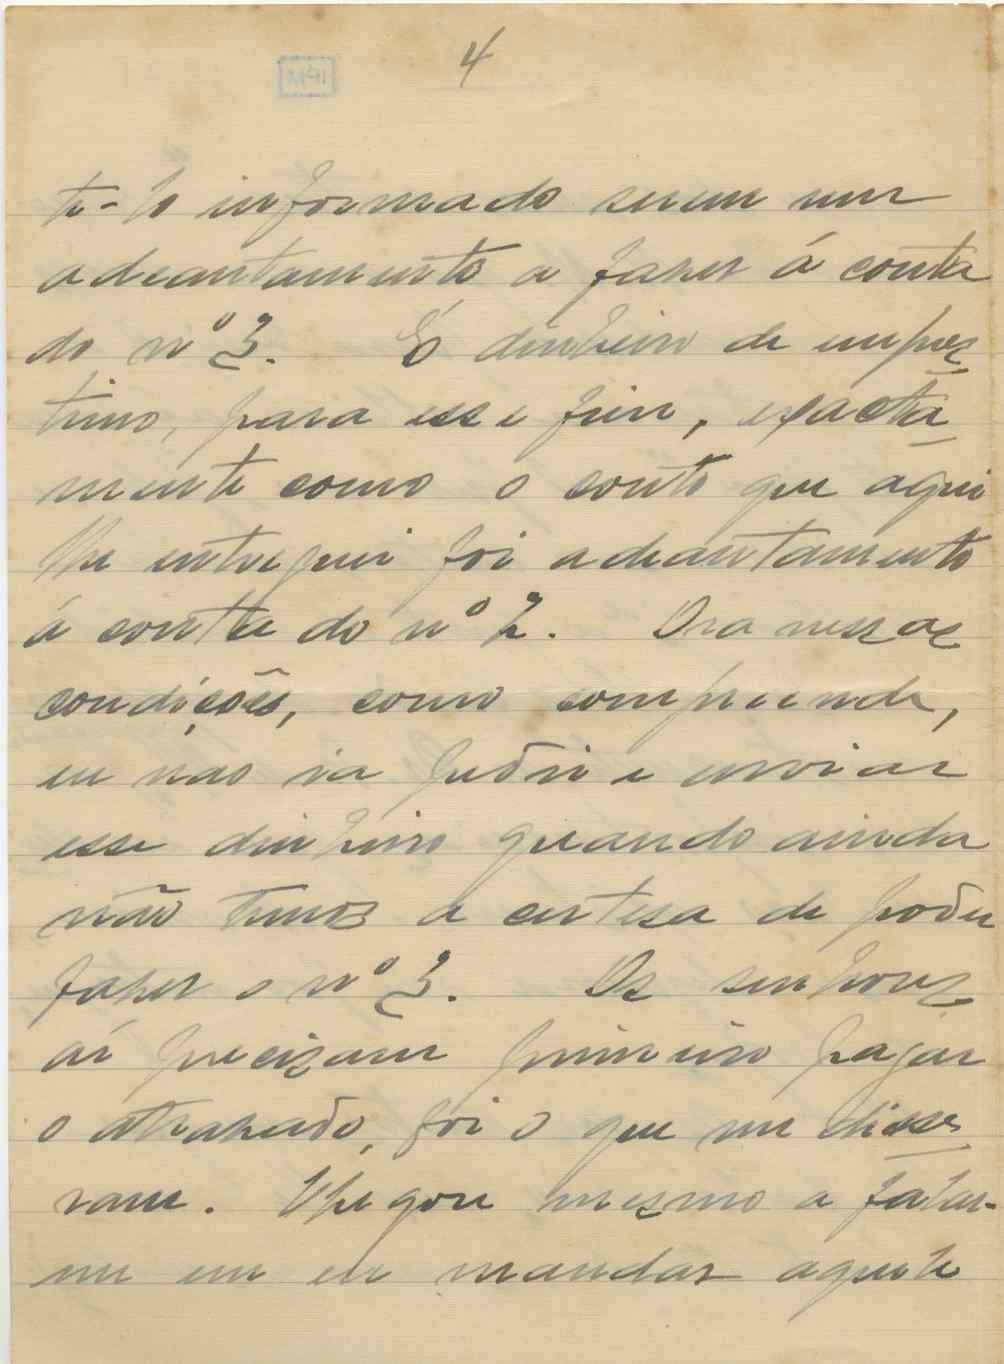 4
te-lo informado serem um
adeantamento a fazer á conta
do nº 3. É dinheiro de empres
timo, para esse fim, exacta
mente como o conto que aqui
lhe entreguei foi adeantamento
á conta do nº 2. Ora nessas
condições, como comprehende,
eu não ia pedir e enviar
esse dinheiro quando ainda
não temos a certesa de poder
fazer o nº 3. Os senhores
aí precizam primeiro pagar
o atrazado, foi o que me disse
ram. Chegou mesmo a falar-
me em eu mandar aquele